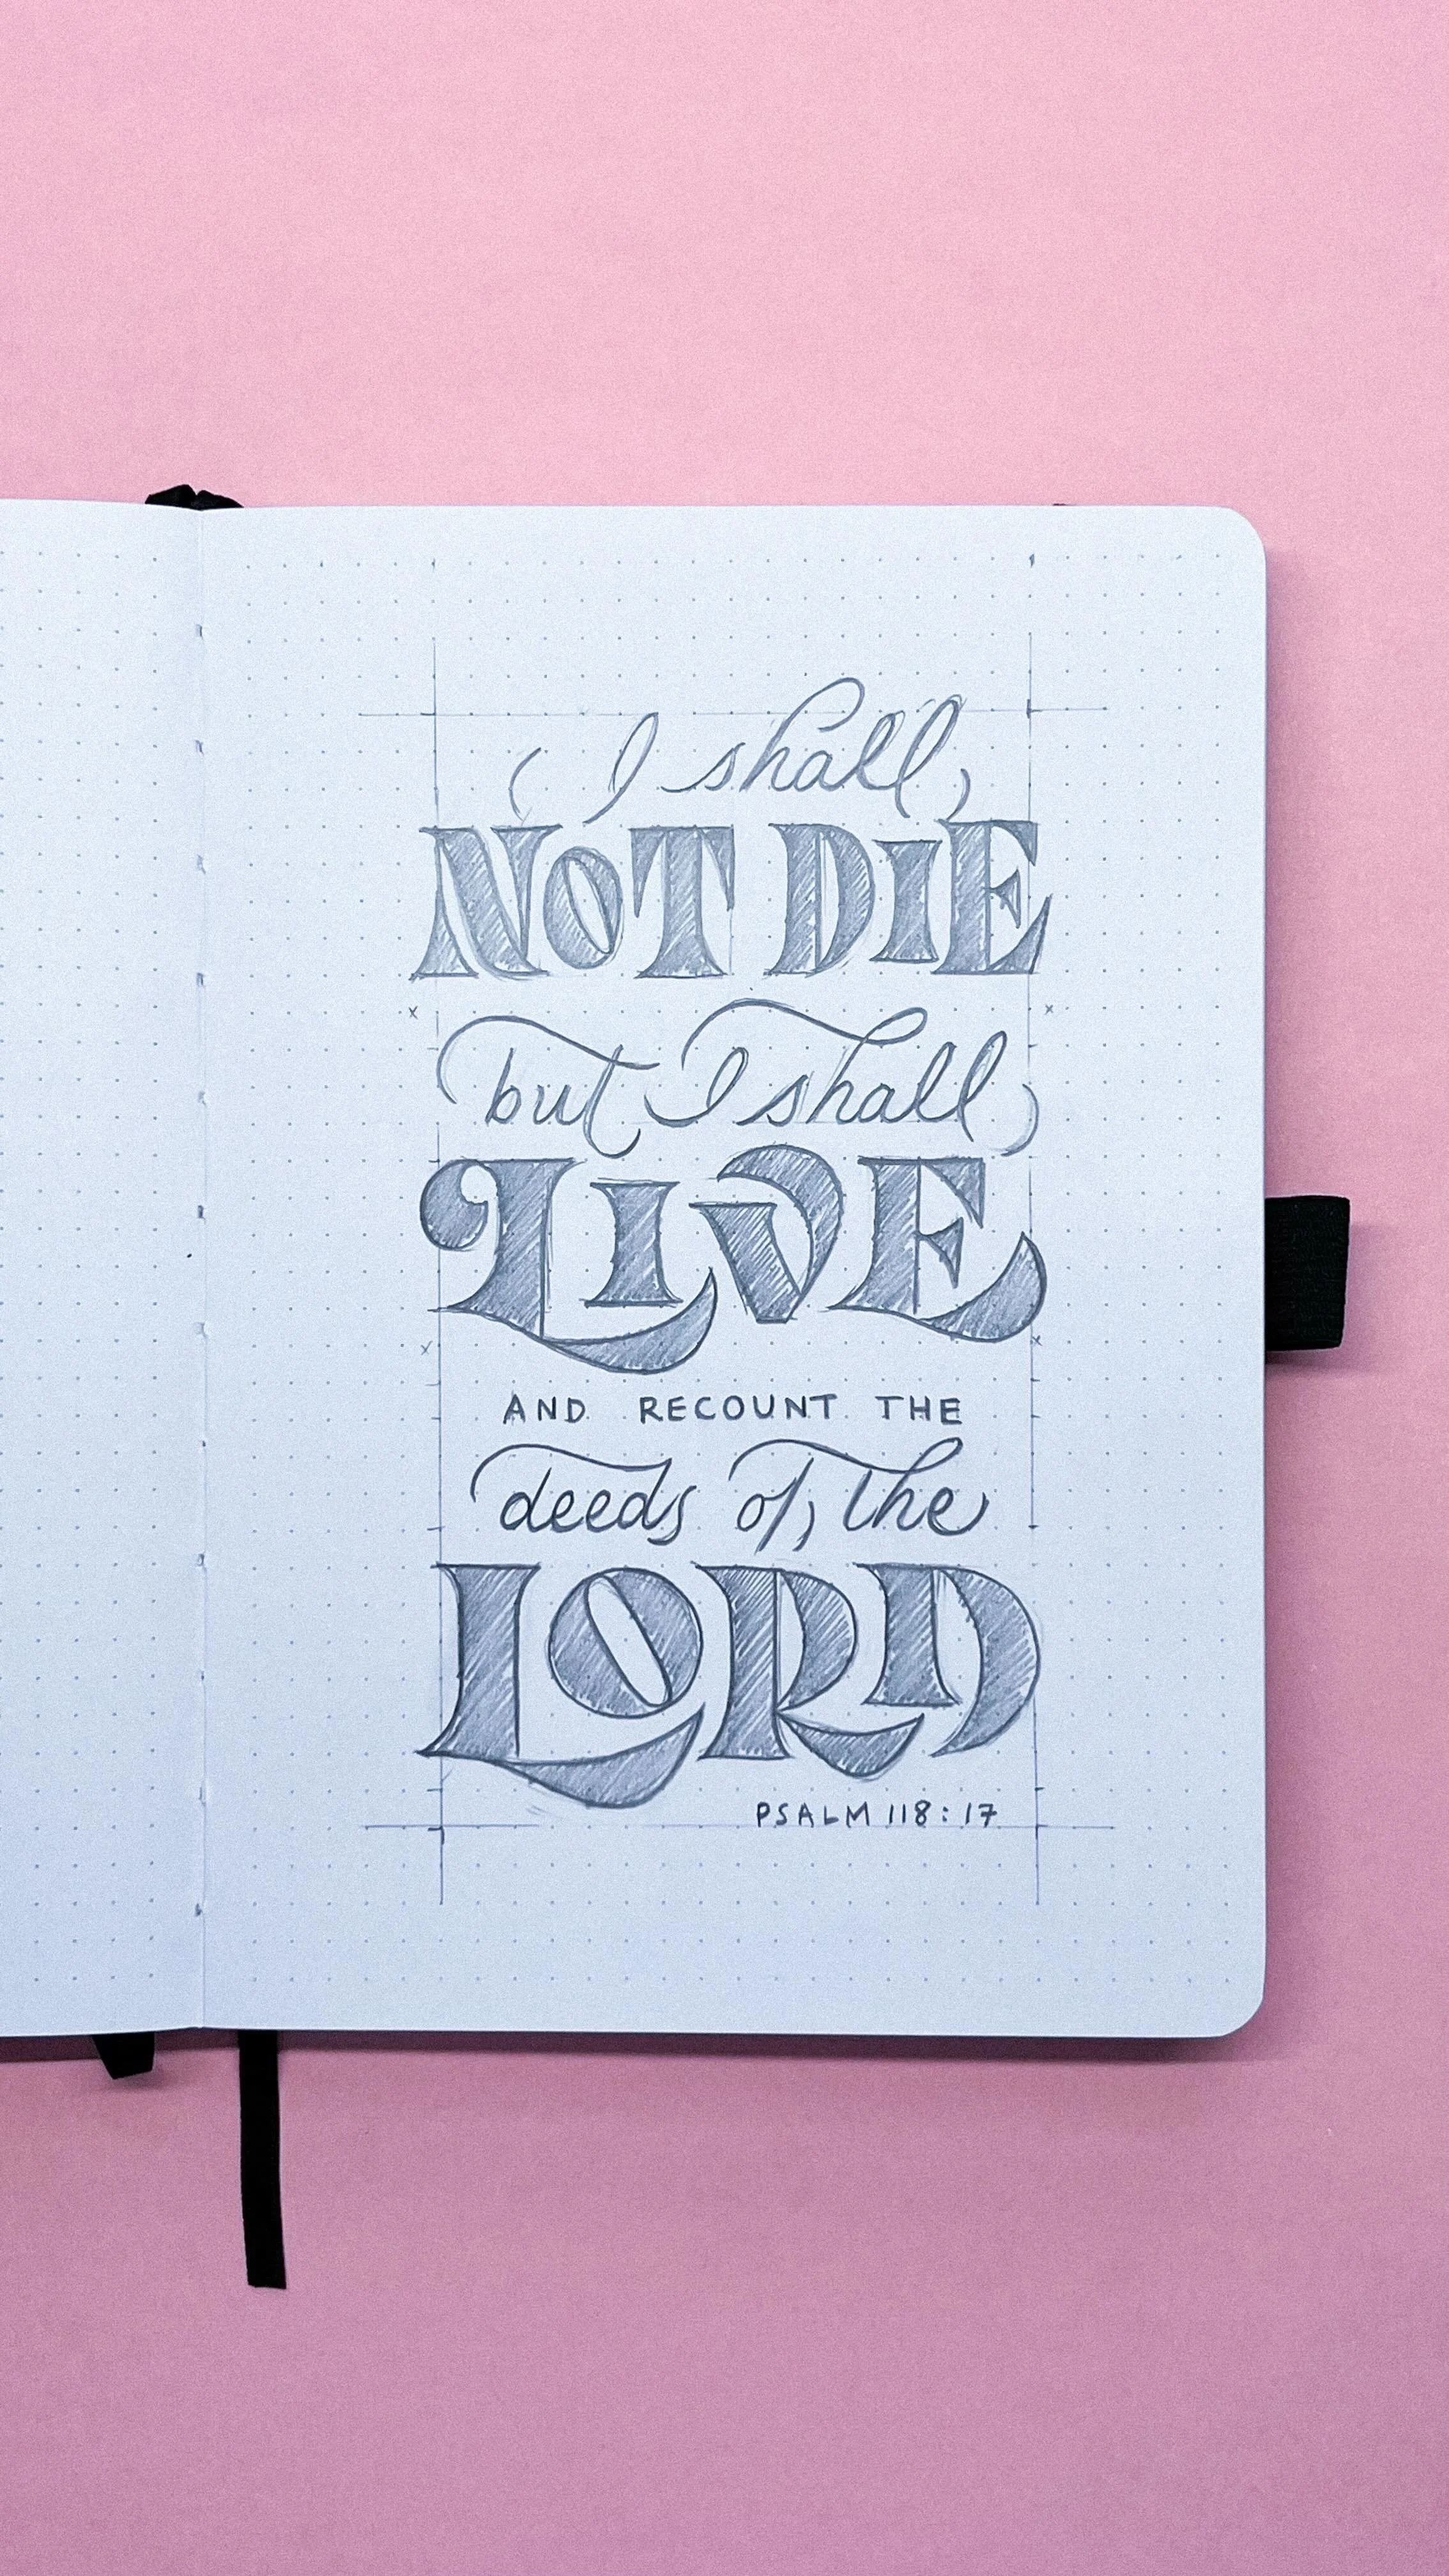 I shall
NOT DIE
but I shall
LIVE
AND RECOUNT THE
deeds of the
LORD
PSALM 118:17